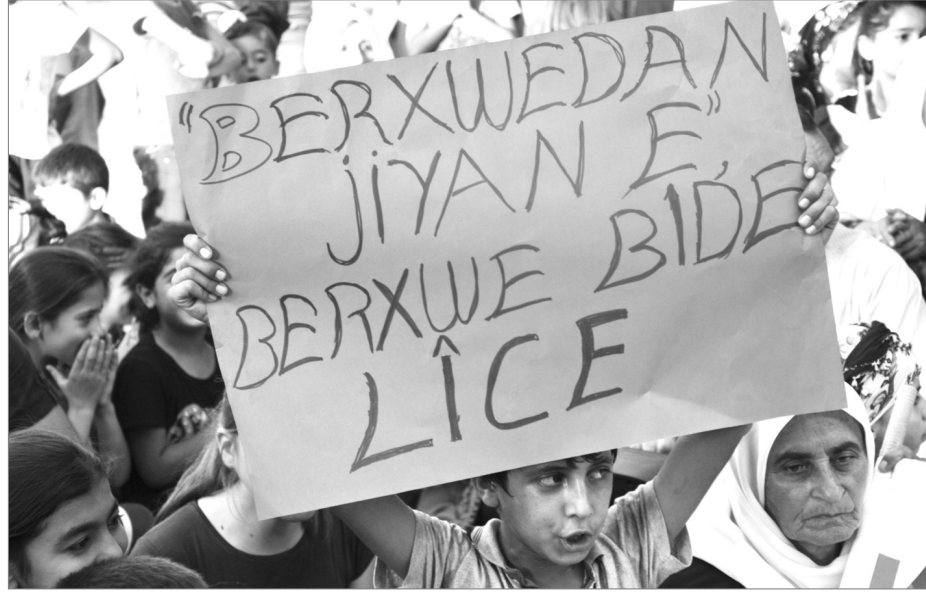 "BERXWEDAN
JIYAN E",
BERXWE BIDE
LÎCE